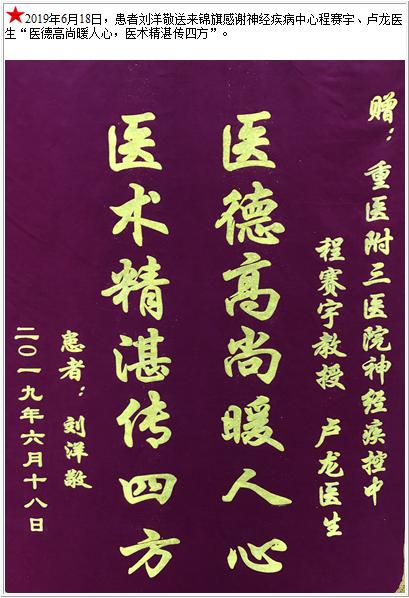 ★2019年6月18日，患者刘洋敬送来锦旗感谢神经疾病中心程赛宇、卢龙医
生“医德高尚暖人心，医术精湛传四方”。
赠：重医附三医院神经疾控中
程赛宇教授 卢龙医生
医德高尚暖人心
医术精湛传四方
患者：刘洋敬
二〇一九年六月十八日